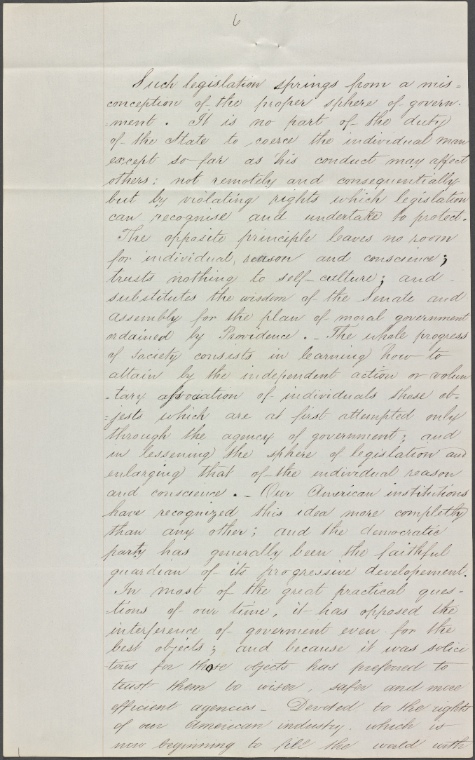 6
Such legislation springs from a mis-
conception of the proper sphere of govern-
ment. It is no part of the duty
of the State to coerce the individual man
except so far as his conduct may affect
others: not remotely and consequentially
but by violating rights which legislation
can recognise and undertake to protect.
The opposite principle leaves no room
for individual, reason and conscience;
trusts nothing to self-culture; and
substitutes the wisdom of the Senate and
assembly for the plan of moral government
ordained by Providence. - The whole progress
of society consists in learning how to
attain by the independent action or volun-
-tary association of individuals those ob-
-jects which are at first attempted only
through the agency of government; and
in lessening the sphere of legislation and
enlarging that of the individual reason
and conscience. - Our American institutions
have recognized this idea more completely
than any other; and the democratic
party has generally been the faithful
guardian of its progressive developement.
In most of the great practical ques-
tions of our time, it has opposed the
interference of goverment even for the
best objects; and because it was solici
tous for those objects has preferred to
trust them to wiser, safer and more
efficient agencies - Devoted to the rights
of our American industry, which is
now beginning to fill the world with